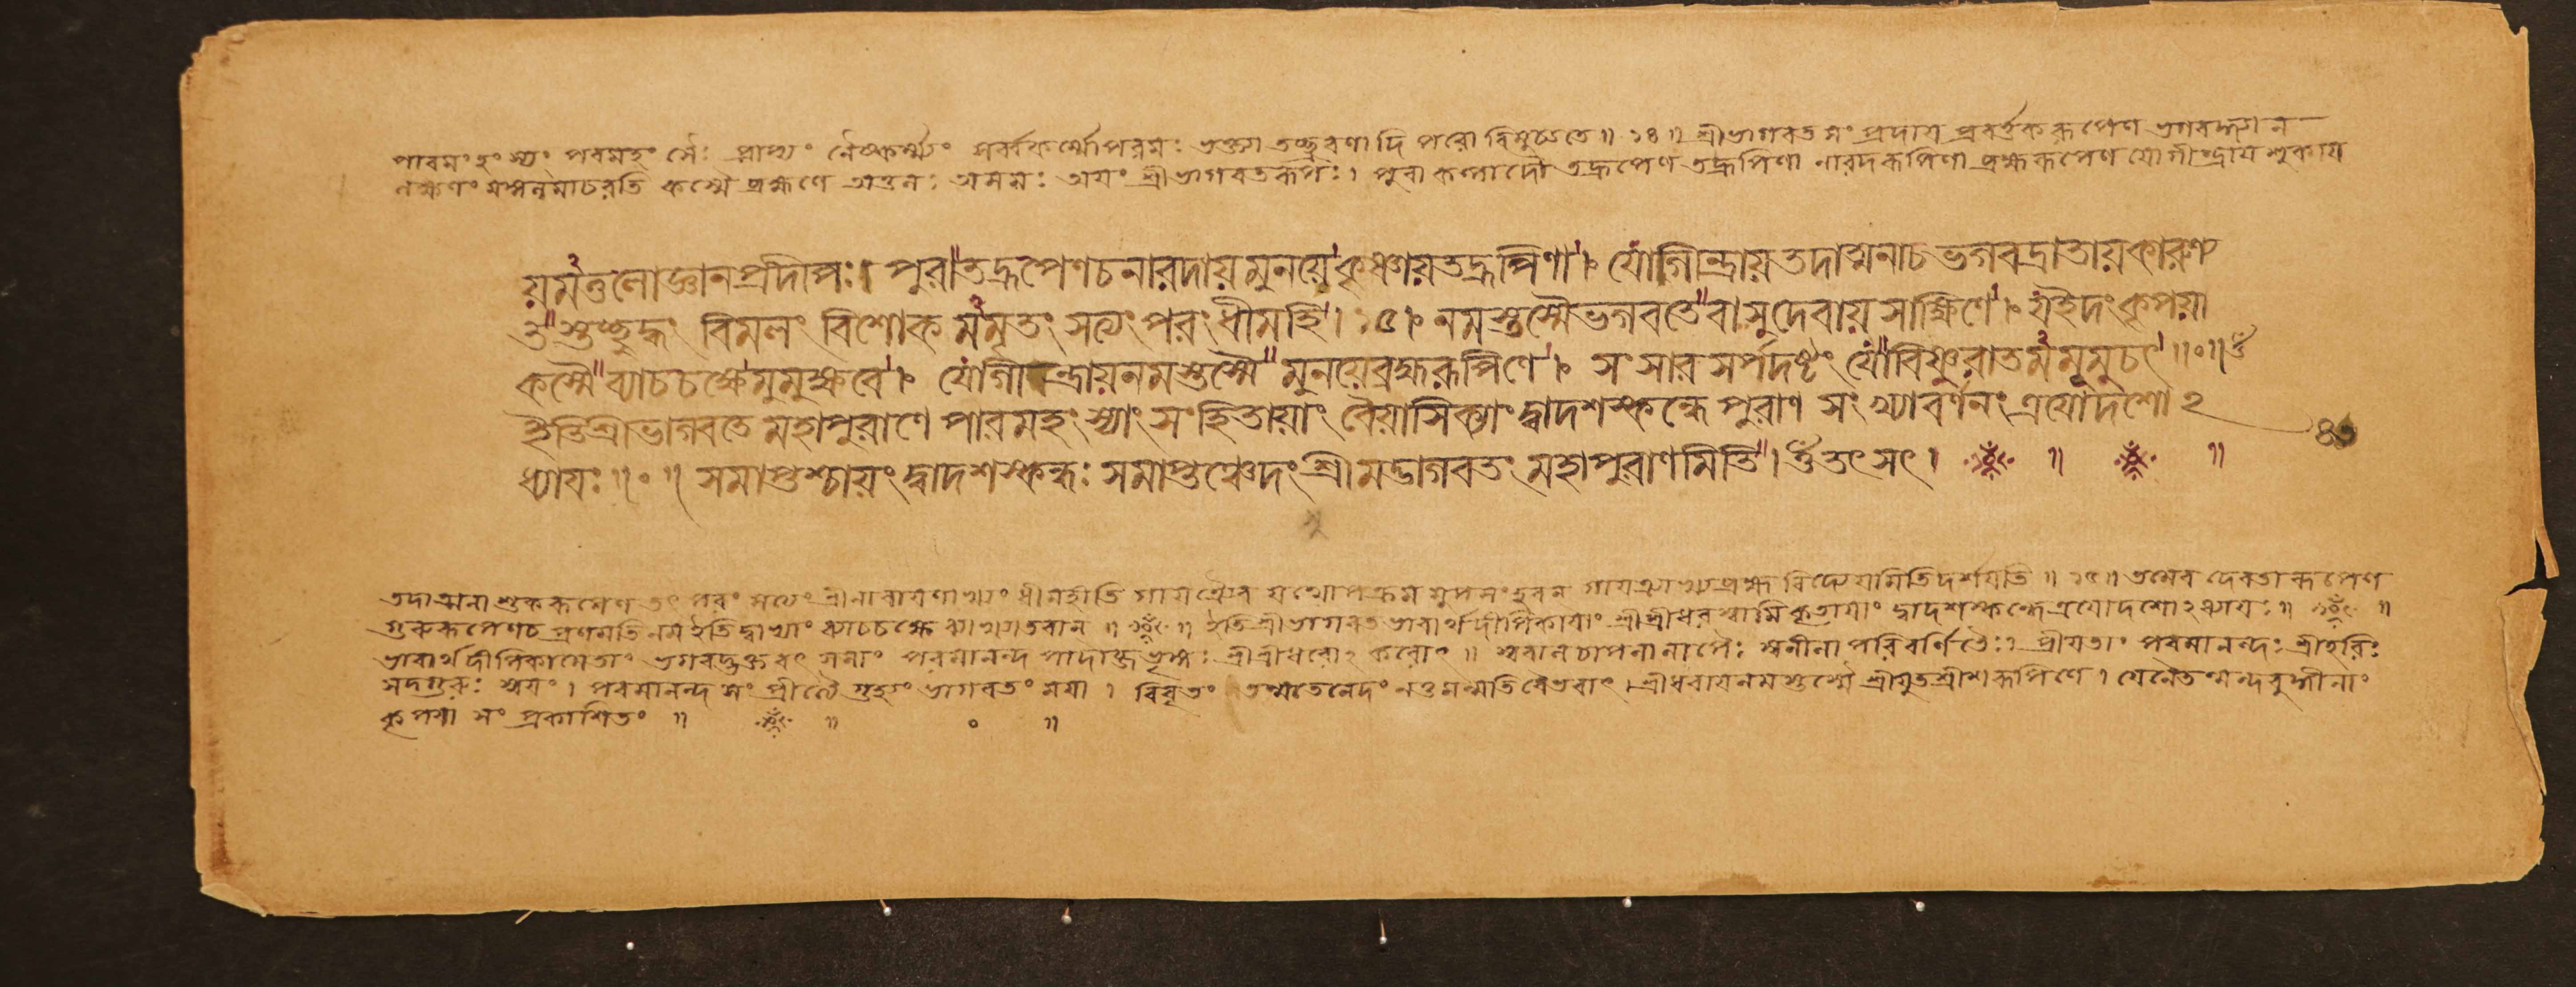 পারমহংস্যং পরমহংসৈঃ প্রাপ্যং নৈষ্কর্ম্ম্যং সর্ব্বকর্ম্মোপরমঃ ভক্ত্যা তচ্ছ্রবণাদি পরো বিমুচ্যতে॥ ১৪॥ শ্রীভাগবত সংপ্রদায় প্রবর্ত্তক রূপেণ ভগবদ্ধ্যান
লক্ষণং মঙ্গলমাচরতি কস্মৈ ব্রহ্মণে অতুলঃ অসমঃ অয়ং শ্রীভাগবতরূপঃ। পুরা কল্পাদৌ তদ্রূপেণ তদ্রূপিণা নারদরূপিণা ব্রহ্মরূপেণ যোগীন্দ্রায় শুকায়
য়মতুলোজ্ঞানপ্রদীপঃ। পুরাতদ্রূপেণচনারদায়মুনয়েকৃষ্ণায়তদ্রূপিণা। যোগীন্দ্রায়তদাত্মনাচভগবদ্রাতায়কারুণ্য
তস্তচ্ছুদ্ধং বিমলং বিশোকমমৃতং সত্যংপরংধীমহি। ১৫। নমস্তস্মৈভগবতেবাসুদেবায়সাক্ষিণে। যইদংকৃপয়া
কস্মৈব্যাচচক্ষেমুমুক্ষবে। যোগীন্দ্রায়নমস্তস্মৈমুনয়েব্রহ্মরূপিণে। সংসারসর্পদষ্টংযোবিষ্ণুরাতমমূমুচৎ॥०॥ওঁ
ইতিশ্রীভাগবতে মহাপুরাণে পারমহংস্যাং সংহিতায়াং বৈয়াসিক্যাং দ্বাদশস্কন্ধে পুরাণ সংখ্যাবর্ণনং ত্রয়োদশোঽ
ধ্যায়ঃ॥०॥ সমাপ্তশ্চায়ংদ্বাদশস্কন্ধঃ সমাপ্তঞ্চেদংশ্রীমদ্ভাগবতং মহাপুরাণমিতি। ওঁতৎসৎ। ॥ ॥
তদাত্মনা শুকরূপেণ তৎ পরং সত্যং শ্রীনারায়ণাখ্যং ধীমহীতি গায়ত্র্যৈব যথোপক্রমমুপসংহরন্ গায়ত্র্যাখ্যব্রহ্ম বিদ্যেয়মিতিদর্শয়তি॥ ১৫॥ তমেব দেবতারূপেণ
গুরুরূপেণচ প্রণমতি নমইতিদ্বাভ্যাং ব্যাচচক্ষে ব্যাখ্যাতবান্॥ ॥ ইতি শ্রীভাগবত ভাবার্থদীপিকায়াং শ্রীশ্রীধরস্বামিকৃতায়াং দ্বাদশস্কন্ধেত্রয়োদশোঽধ্যায়ঃ॥ ॥
ভাবার্থদীপিকামেতাং ভগবদ্ভক্তবৎসলাং পরমানন্দ পাদাব্জভৃঙ্গঃ শ্রীশ্রীধরোঽকরোৎ॥ পরিবর্ণিতৈঃ। প্রীয়তাং পরমানন্দঃ শ্রীহরিঃ
সদগুরুঃ স্বয়ং। পরমানন্দ সংপ্রীত্যৈ গুহ্যং ভাগবতং ময়া। বিবৃতং শ্রীধরায়নমস্তস্মৈ যেনৈতন্মন্দবুদ্ধীনাং
কৃপয়া সংপ্রকাশিতং॥ ॥ ० ॥